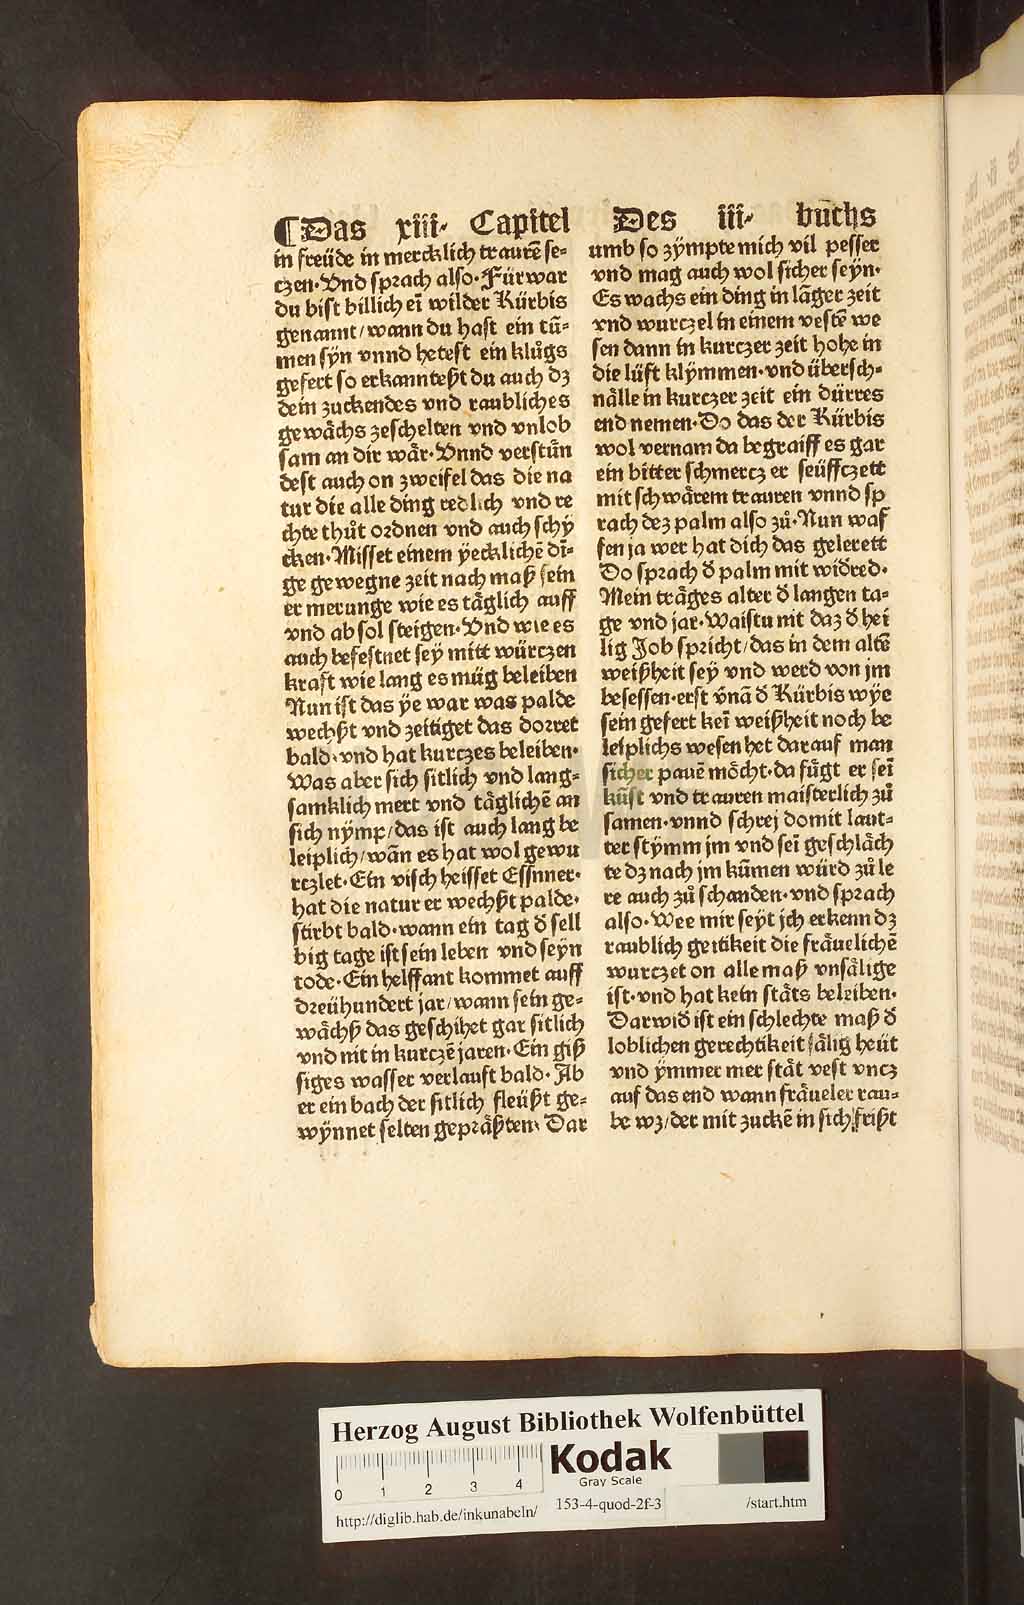 ¶Das xiii· Capitel
in freüde in mercklich traurē se⸗
czen·Vnd sprach also·Fürwar
du bist billich eī wilder Kürbis
genannt/wann du hast ein tū⸗
men sÿn vnnd hetest ein klůgs
gefert so erkanntest du auch dz
dein zuckendes vnd raubliches
gewächs zeschelten vnd vnlob
sam an dir wär·Vnnd verstün
dest auch on zweifel das die na
tur die alle ding redlich vnd re
chte thůt ordnen vnd auch schÿ
cken·Misset einem ÿecklichē dī⸗
ge gewegne zeit nach maß sein
er merunge wie es täglich auff
vnd ab sol steigen·Vnd wie es
auch befestnet seÿ mitt würczen
kraft wie lang es müg beleiben
Nun ist das ÿe war was palde
wechßt vnd zeitiget das dorret
bald·vnd hat kurczes beleiben·
Was aber sich sitlich vnd lang⸗
samklich mert vnd täglichē an
sich nÿmp/das ist auch lang be
leiplich/wān es hat wol gewu
rczlet·Ein visch heisset Essnner·
hat die natur er wechßt palde·
stirbt bald·wann ein tag d̄ sell
big tage ist sein leben vnd seÿn
tode·Ein helffant kommet auff
dreühundert jar/wann sein ge⸗
wächß das geschihet gar sitlich
vnd nit in kurczē jaren·Ein giß
siges wasser verlauft bald·Ab
er ein bach der sitlich fleüßt ge⸗
wÿnnet selten gepräßten· Dar
Des iii· būchs
umb so zÿmpte mich vil pesser
vnd mag auch wol sicher seÿn·
Es wachs ein ding in lāger zeit
vnd wurczel in einem vestē we
sen dann in kurczer zeit hohe in
die lüft klÿmmen·vnd übersch⸗
nälle in kurczer zeit ein dürres
end nemen·Do das der Kürbis
wol vernam da begraiff es gar
ein bitter schmercz er seüffczett
mit schwärem trauren vnnd sp
rach dez palm also zů·Nun waf
fen ja wer hat dich das gelerett
Do sprach d̄ palm mit wid̄red·
Mein träges alter d̄ langen ta⸗
ge vnd jar·Waistu nit daz d̄ hei
lig Job spricht/das in dem altē
weißheit seÿ vnd werd von jm
besessen·erst v̄nā d̄ Kürbis wÿe
sein gefert keī weißheit noch be
leiplichs wesen het darauf man
sicher pauē möcht·da fůgt er seī
kūst vnd trauren maisterlich zů
samen·vnnd schrej domit laut⸗
ter stÿmm jm vnd seī geschläch
te dz nach jm kūmen würd zů le
re auch zů schanden·vnd sprach
also·Wee mir seÿt jch erkenn dz
raublich geitikeit die fräuelichē
wurczet on alle maß vnsälige
ist·vnd hat kein stäts beleiben·
Darwid̄ ist ein schlechte maß d̄
loblichen gerechtikeit sälig heüt
vnd ÿmmer mer stät vest vncz
auf das end wann fräueler rau⸗
be wz/der mit zuckē in sich frißt
Herzog August Bibliothek Wolfenbüttel
0 1 2 3 4
Kodak
Gray Scale
http://diglib.hab.de/inkunabeln/ 153-4-quod-2f-3 /start.htm